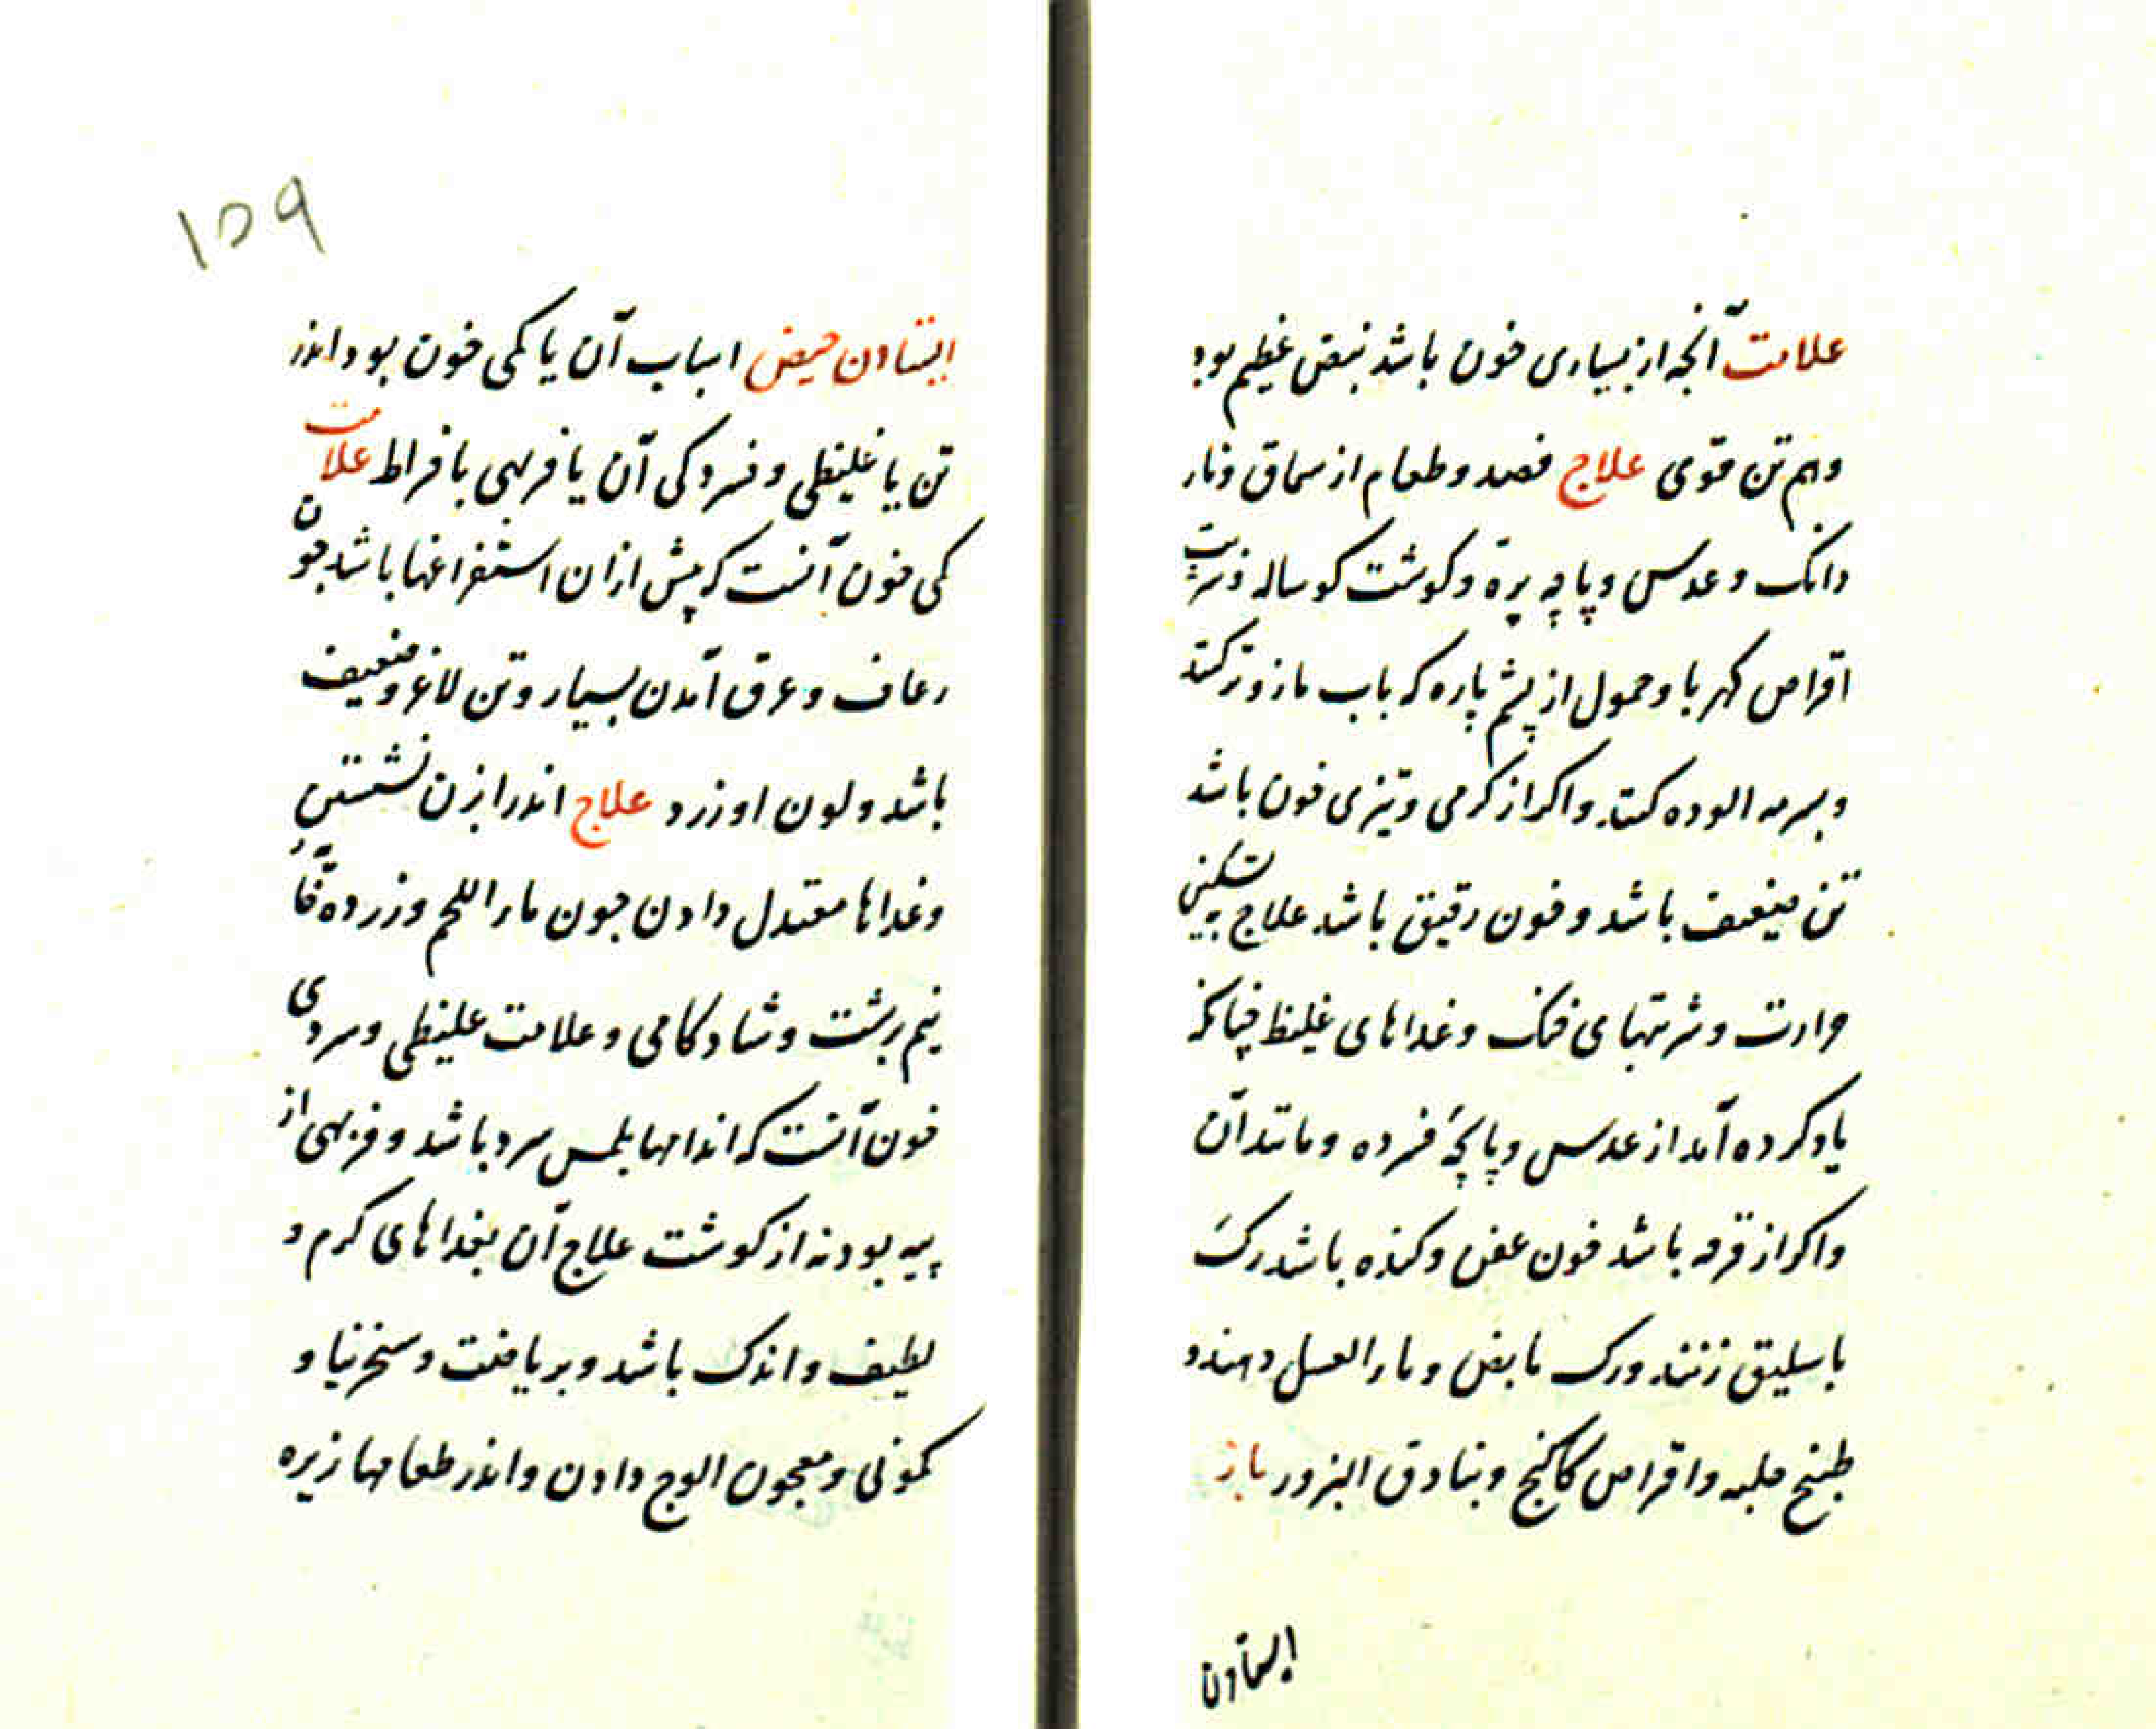 علامت آنجه از بسیاری خون باشد نبض عظیم بود
وهم تن قوی علاج فصد وطعام از سماق ونار
دانک وعدس وپاچه بره وکوشت کوساله وشربت
اقراص کهربا وحمول از پشم پاره که باب مازو ترکنند
وبسرمه الوده کنند واکر از کرمی وتیزی خون باشد
تن ضعیف باشد وخون رقیق باشد علاج تسکین
حرارت وشربتهای خنک وغداهای غلیظ چنانکه
یاد کرده آمد از عدس وپاچۀ فسرده ومانند آن
واکر از قرحه باشد خون عفن وکنده باشد رک
باسلیق زنند ورک مابض وماء العسل دهند و
طبیخ حلبه واقراص کاکنج وبنادق البزور باز
ایستادن
۱۵۹
ایستادن حیض اسباب آن یا کمی خون بود اندر
تن یا غلیظی وفسردکی آن یا فربهی بافراط علامت
کمی خون آنست که پیش ازان استفراغها باشد جون
رعاف وعرق آمدن بسیار وتن لاغر وضعیف
باشد ولون او زرد علاج اندر ابزن نشستن
وغداها معتدل دادن جون ماء اللحم وزرده خایه
نیم برشت وشادکامی وعلامت غلیظی وسردی
خون آنست که اندامها بلمس سرد باشد وفربهی از
پیه بود نه از کوشت علاج آن بغداهای کرم و
لطیف واندک باشد وبریاضت وسنجرنیا و
کمونی ومعجون الوج دادن واندر طعامها زیره